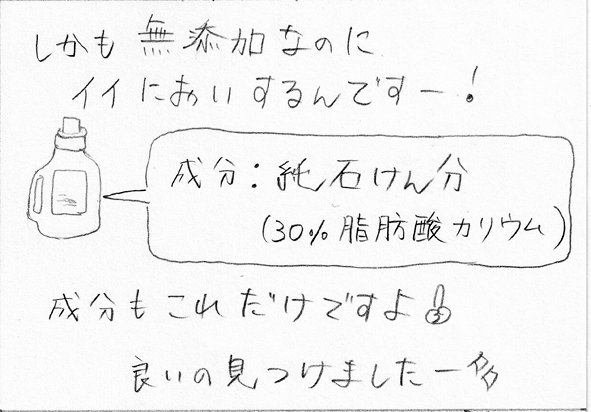 しかも無添加なのに
イイにおいするんですー！
成分：純石けん分
(30%脂肪酸カリウム)
成分もこれだけですよ
良いの見つけましたー